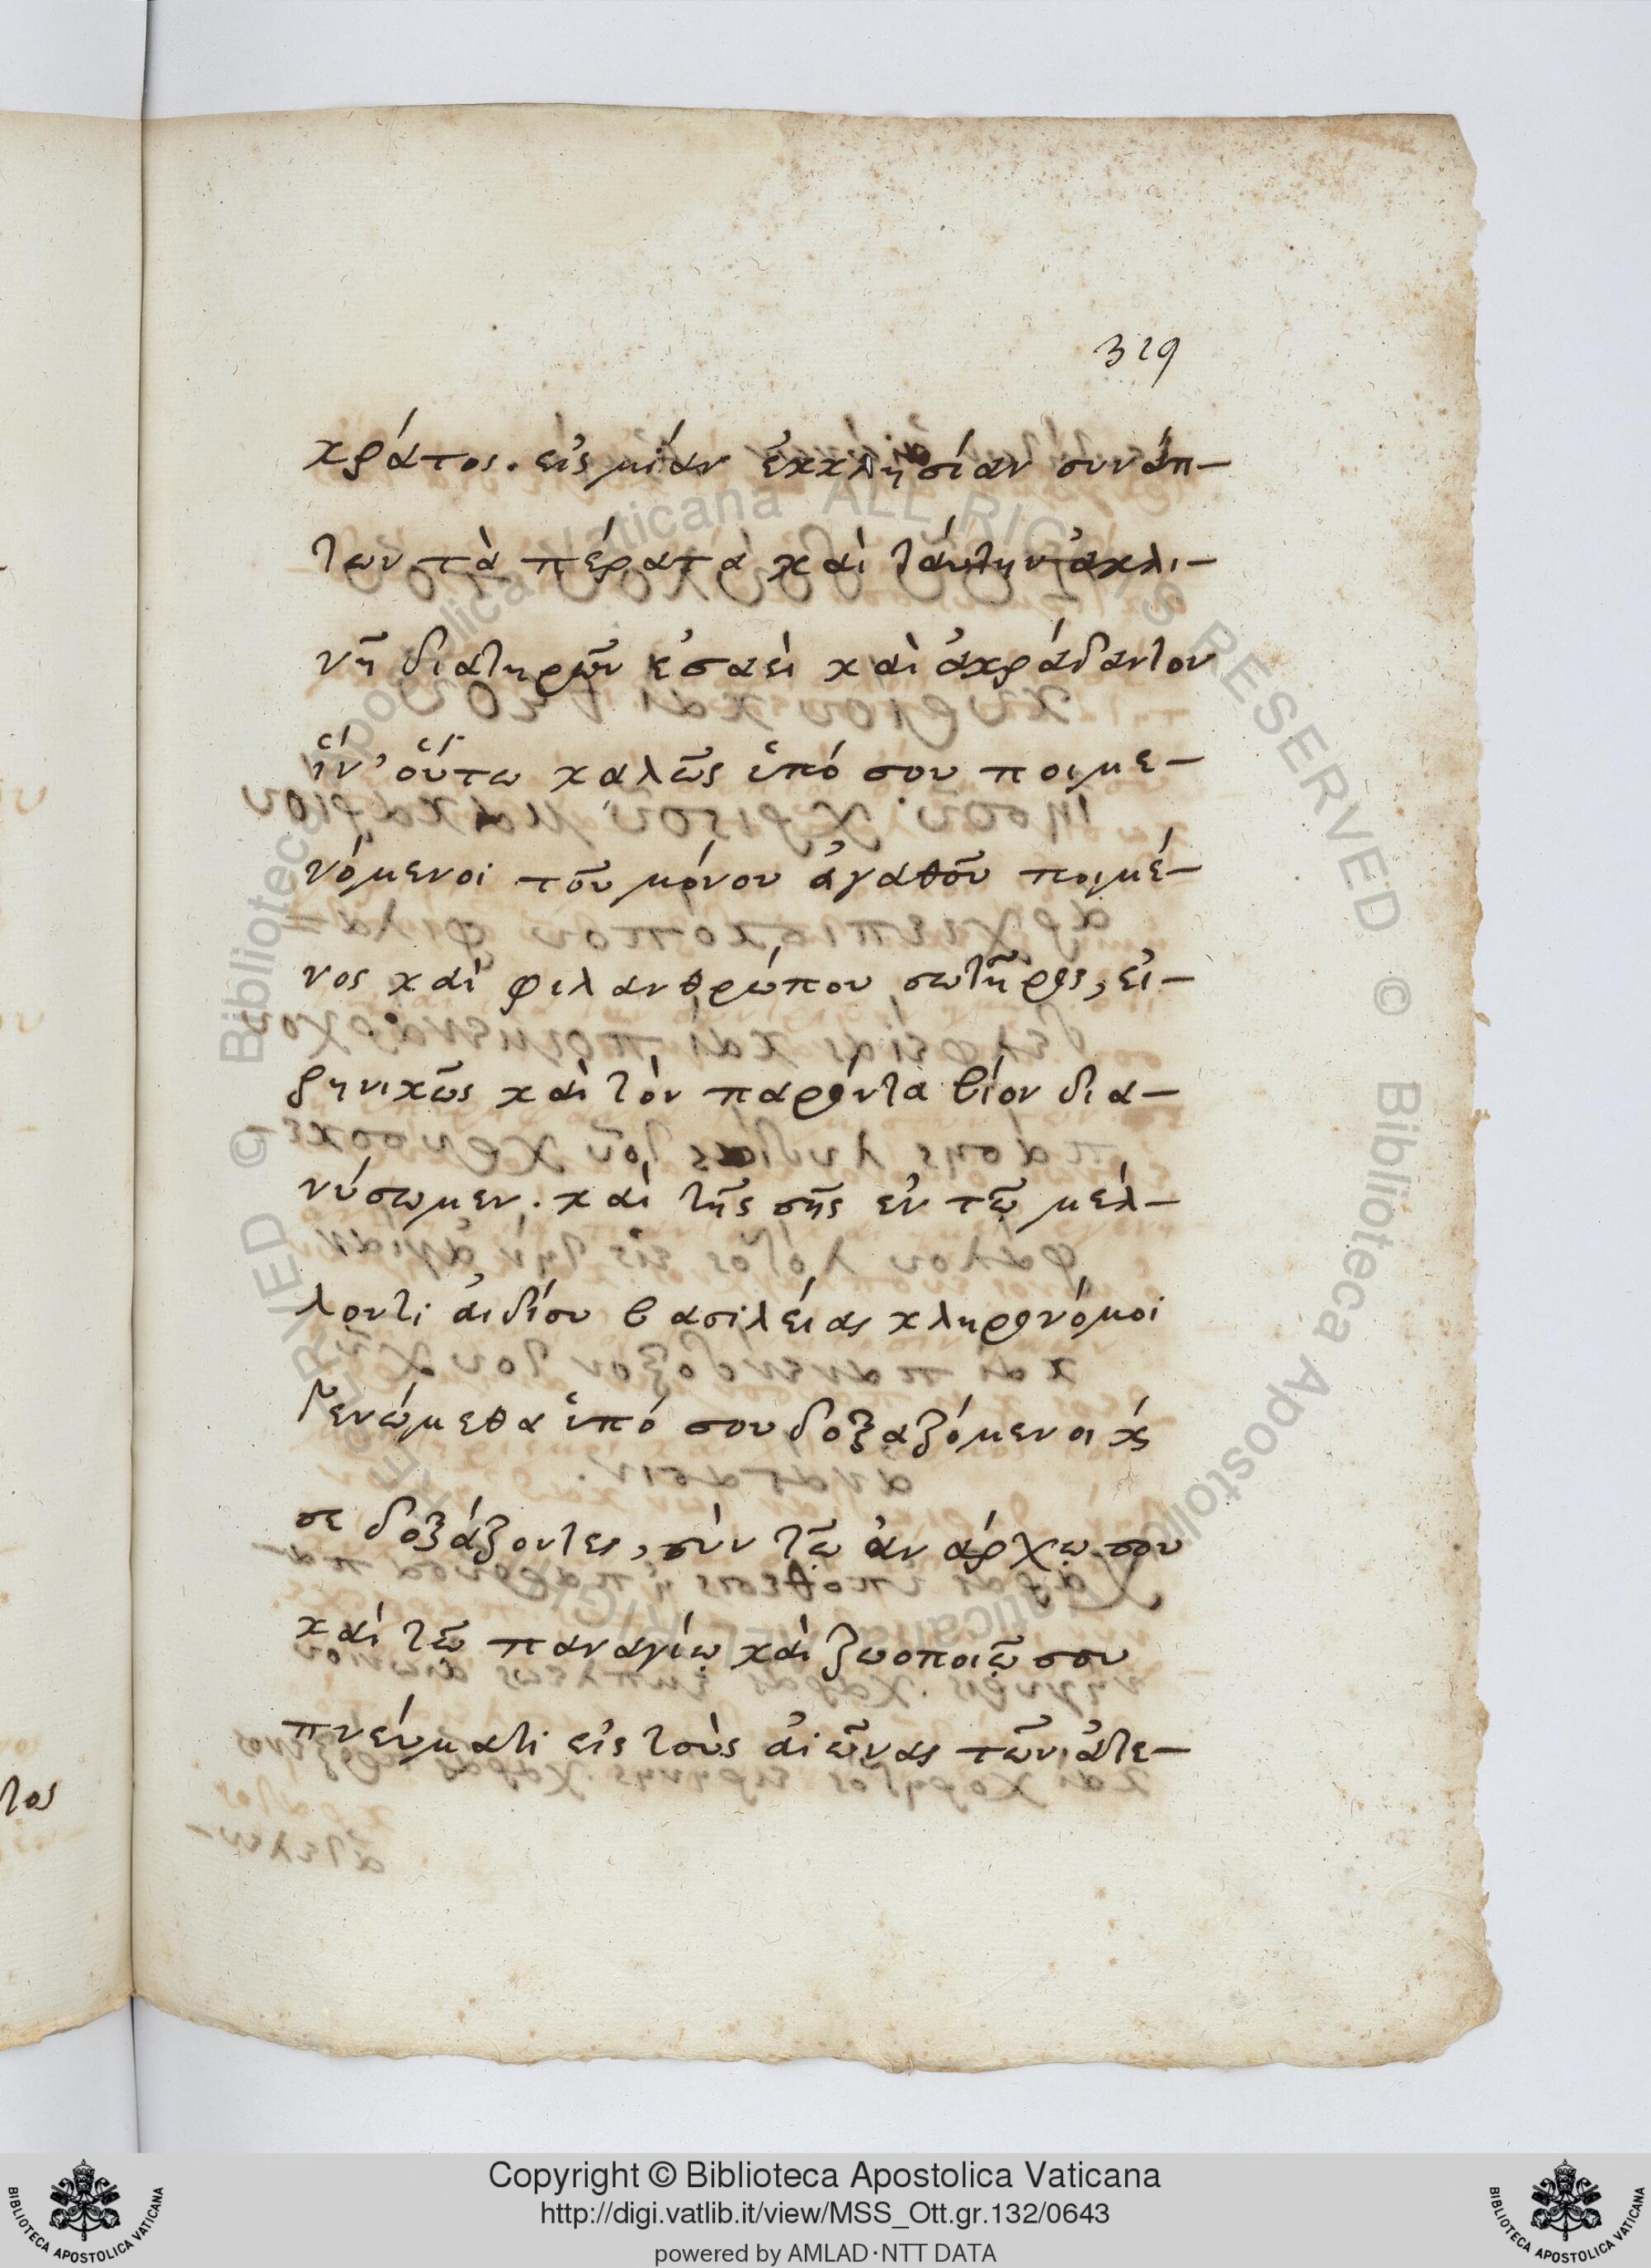 329
κράτος. εἰς μίαν ἐκκλησίαν συνάπ-
των τὰ πέρατα καὶ ταύτην ἀκλι-
νῆ διατηρῶν ἐσαεὶ καὶ ἀκράδαντον
ἵν' οὕτω καλῶς ὑπό σου ποιμε-
νόμενοι τοῦ μόνου ἀγαθοῦ ποιμέ-
νος καὶ φιλανθρώπου σωτῆρος, εἰ-
ρηνικῶς καὶ τὸν παρόντα βίον δια-
νύσωμεν. καὶ τῆς σῆς ἐν τῷ μέλ-
λοντι ἀιδίου βασιλείας κληρονόμοι
γενώμεθα ὑπό σου δοξαζόμενοι κ̀
σε δοξάζοντες, σὺν τῷ ἀνάρχῳ σου
καὶ τῷ παναγίῳ καὶ ζωοποιῷ σου
πνεύματι εἰς τοὺς αἰῶνας τῶν ἀτε-
τος
Copyright © Biblioteca Apostolica Vaticana
http://digi.vatlib.it/view/MSS_Ott.gr.132/0643
powered by AMLAD·NTT DATA
BIBLIOTECA APOSTOLICA VATICANA
BIBLIOTECA APOSTOLICA VATICANA